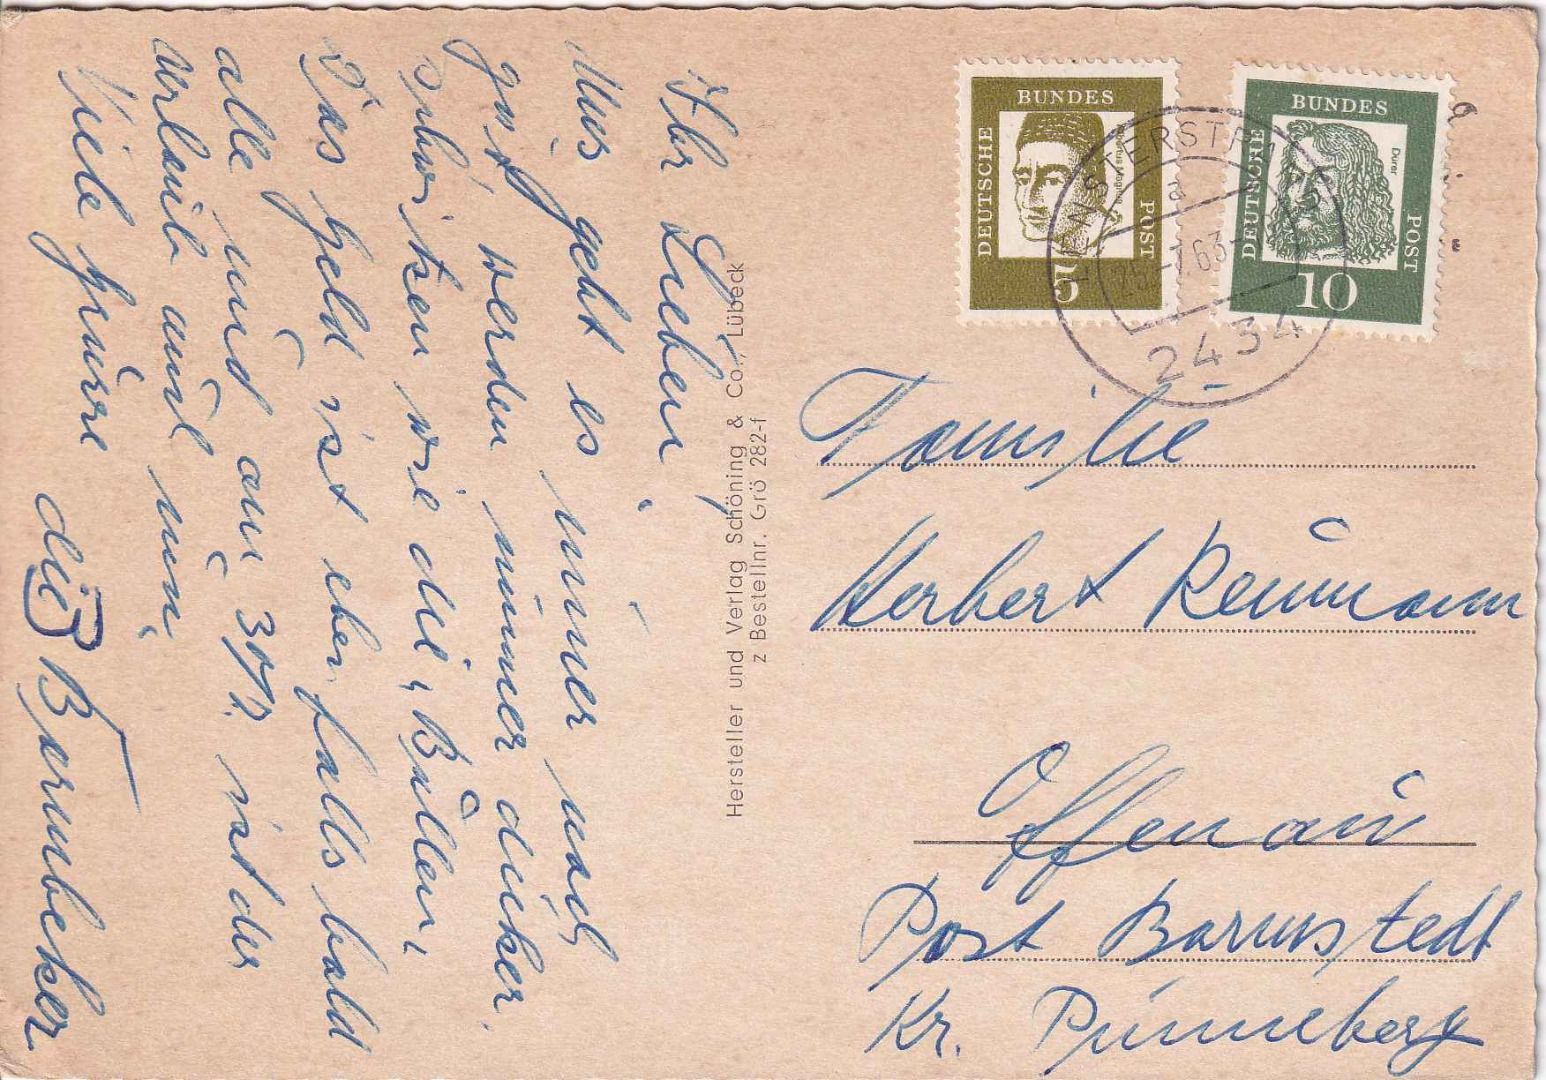 Ihr Lieben,
Uns geht es immer noch
gut, werden immer dicker,
schwitzen wie die Bullen,
Das Geld ist ebenfalls bald
alle und am 30/7. ist der
Urlaub auch um.
Viele Grüsse die 3 Barmbeker
Hersteller und Verlag Schöning & Co., Lübeck
z Bestellnr. Grö 282-f
DEUTSCHE BUNDES POST
5
DEUTSCHE BUNDES POST
Dürer
10
a
25.-7.63-
2434
Familie
Herbert Reumann
Offenau
Post Barmstedt
Kr. Pinneberg